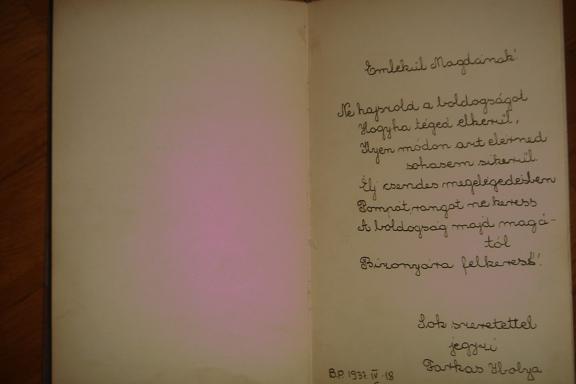 Emlékül Magdának!
Ne hajszold a boldogságot
Hogyha téged elkerül,
Ilyen módon azt elérned
sohasem sikerül.
Élj csendes megelégedésben
Pompát, rangot ne keress
A boldogság majd magá-
tól
Bizonyára felkeres!
Sok szeretettel
jegyzi
Farkas Ibolya
B.P. 1937 IV. 18